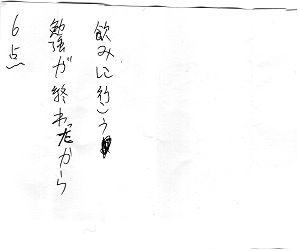 飲みに行こう
勉強が終わったから
6点